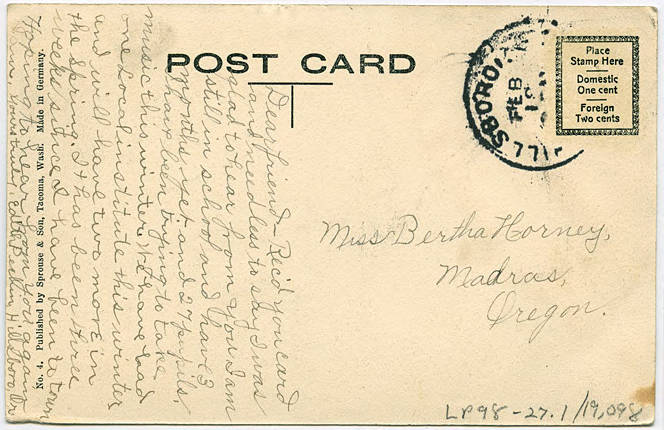 POST CARD
Place
Stamp Here
Domestic
One cent
Foreign
Two cents
HILLSBORO,
FEB
Dear friend - Rec'd your card
and needless to say I was
glad to hear from you. I am
still in school and have 3
months yet and 27 pupils.
I have been trying to take
music this winter. We have had
one local institute this winter
and will have two more in
the Spring. It has been three
weeks since I have been to town
Hoping to hear from you again
Hillsboro, Or
No. 4. Published by Sprouse & Son, Tacoma, Wash. Made in Germany.
Miss Bertha Horney,
Madras,
Oregon.
LP98-27.1/19,098